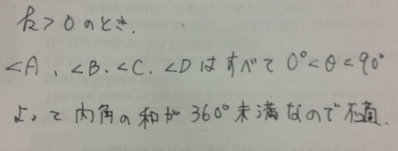 k>0のとき.
∠A、∠B、∠C、∠Dはすべて 0°<θ<90°
よって 内角の和が 360°未満なので不適.